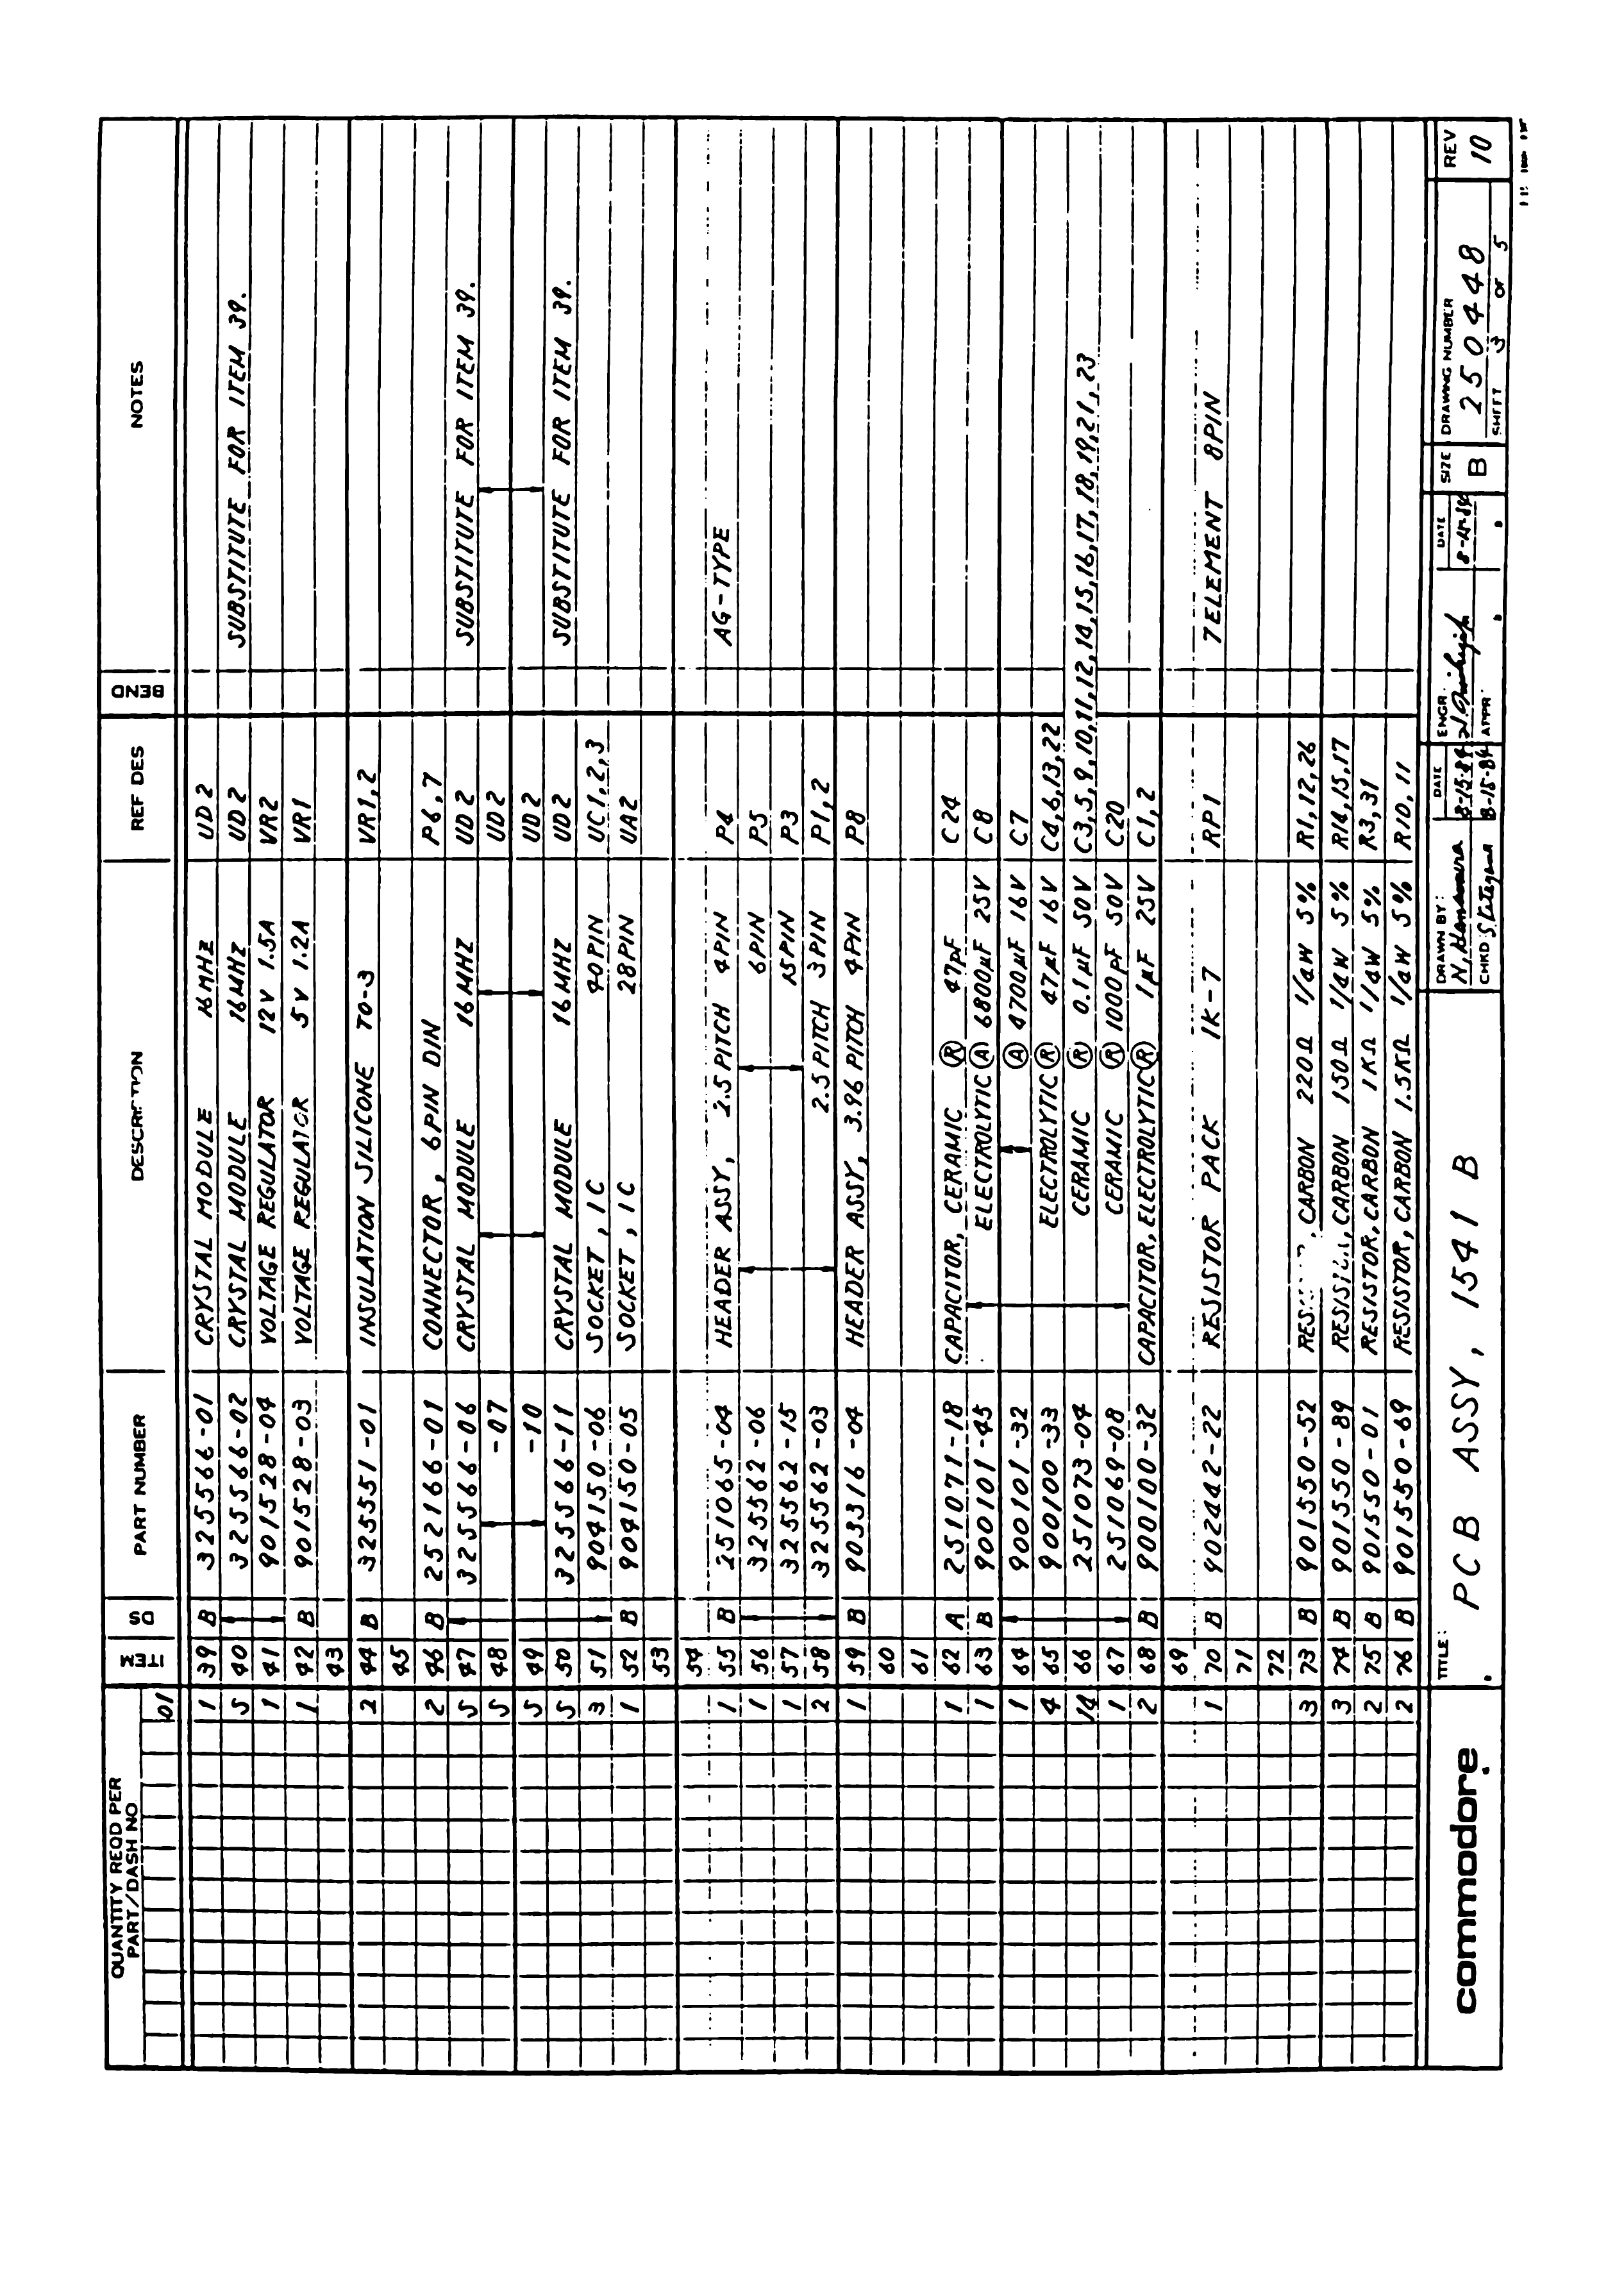 QUANTITY REQD PER PART/DASH NO ITEM DS PART NUMBER DESCRIPTION REF DES BEND NOTES
01
1 39 B 325566-01 CRYSTAL MODULE 16MHZ UD2
S 40 325566-02 CRYSTAL MODULE 16MHZ UD2 SUBSTITUTE FOR ITEM 39.
1 41 901528-04 VOLTAGE REGULATOR 12V 1.5A VR2
1 42 B 901528-03 VOLTAGE REGULATOR 5V 1.2A VR1
43
2 44 B 325551-01 INSULATION SILICONE TO-3 VR1,2
45
2 46 B 252166-01 CONNECTOR, 6PIN DIN P6,7
S 47 325566-06 CRYSTAL MODULE 16MHZ UD2 SUBSTITUTE FOR ITEM 39.
S 48 -07 UD2
S 49 -10 UD2
S 50 325566-11 CRYSTAL MODULE 16MHZ UD2 SUBSTITUTE FOR ITEM 39.
3 51 904150-06 SOCKET, IC 40PIN UC1,2,3
1 52 B 904150-05 SOCKET, IC 28PIN UA2
53
54
1 55 B 251065-04 HEADER ASSY, 2.5 PITCH 4PIN P4 AG-TYPE
1 56 325562-06 6PIN P5
1 57 325562-15 15PIN P3
2 58 325562-03 2.5 PITCH 3PIN P1,2
1 59 B 903316-04 HEADER ASSY, 3.96 PITCH 4PIN P8
60
61
1 62 A 251071-18 CAPACITOR, CERAMIC Ⓡ 47pF C24
1 63 B 900101-45 ELECTROLYTIC Ⓐ 6800µF 25V C8
1 64 900101-32 Ⓐ 4700µF 16V C7
4 65 900100-33 ELECTROLYTIC Ⓡ 47µF 16V C4,6,13,22
14 66 251073-04 CERAMIC Ⓡ 0.1µF 50V C3,5,9,10,11,12,14,15,16,17,18,19,21,23
1 67 251069-08 CERAMIC Ⓡ 1000pF 50V C20
2 68 B 900100-32 CAPACITOR, ELECTROLYTIC Ⓡ 1µF 25V C1,2
69
1 70 B 902442-22 RESISTOR PACK 1K-7 RP1 7ELEMENT 8PIN
71
72
3 73 B 901550-52 , CARBON 220Ω 1/4W 5% R1,12,26
3 74 B 901550-89 , CARBON 150Ω 1/4W 5% R14,15,17
2 75 B 901550-01 RESISTOR, CARBON 1KΩ 1/4W 5% R3,31
2 76 B 901550-69 RESISTOR, CARBON 1.5KΩ 1/4W 5% R10,11
commodore
TITLE:
PCB ASSY, 1541 B
DRAWN BY: DATE
CHKD: 8-15-84
ENGR. DATE
APPR.
SIZE
B
DRAWING NUMBER
250448
SHEET 3 OF 5
REV
10